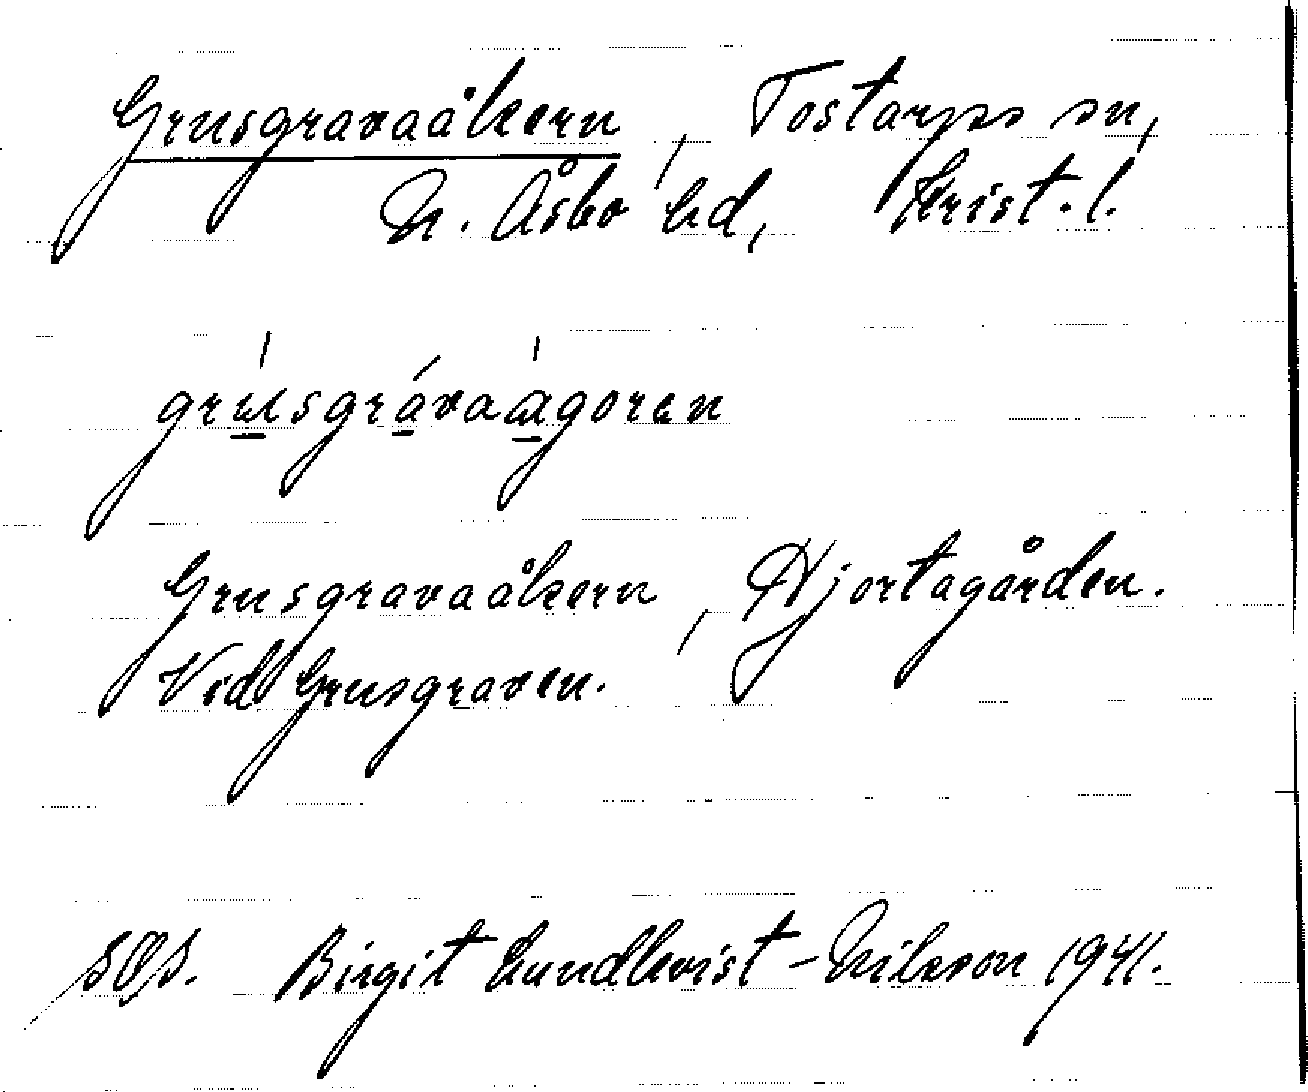 Grusgravaåkern, Tostarps sn,
N. Åsbo hd, Krist. l.
grúsgrávaágoren
Grusgravaåkern, Hjortagården.
Vid Grusgraven.
SOS. Birgit Lundkvist-Nilsson 1941.